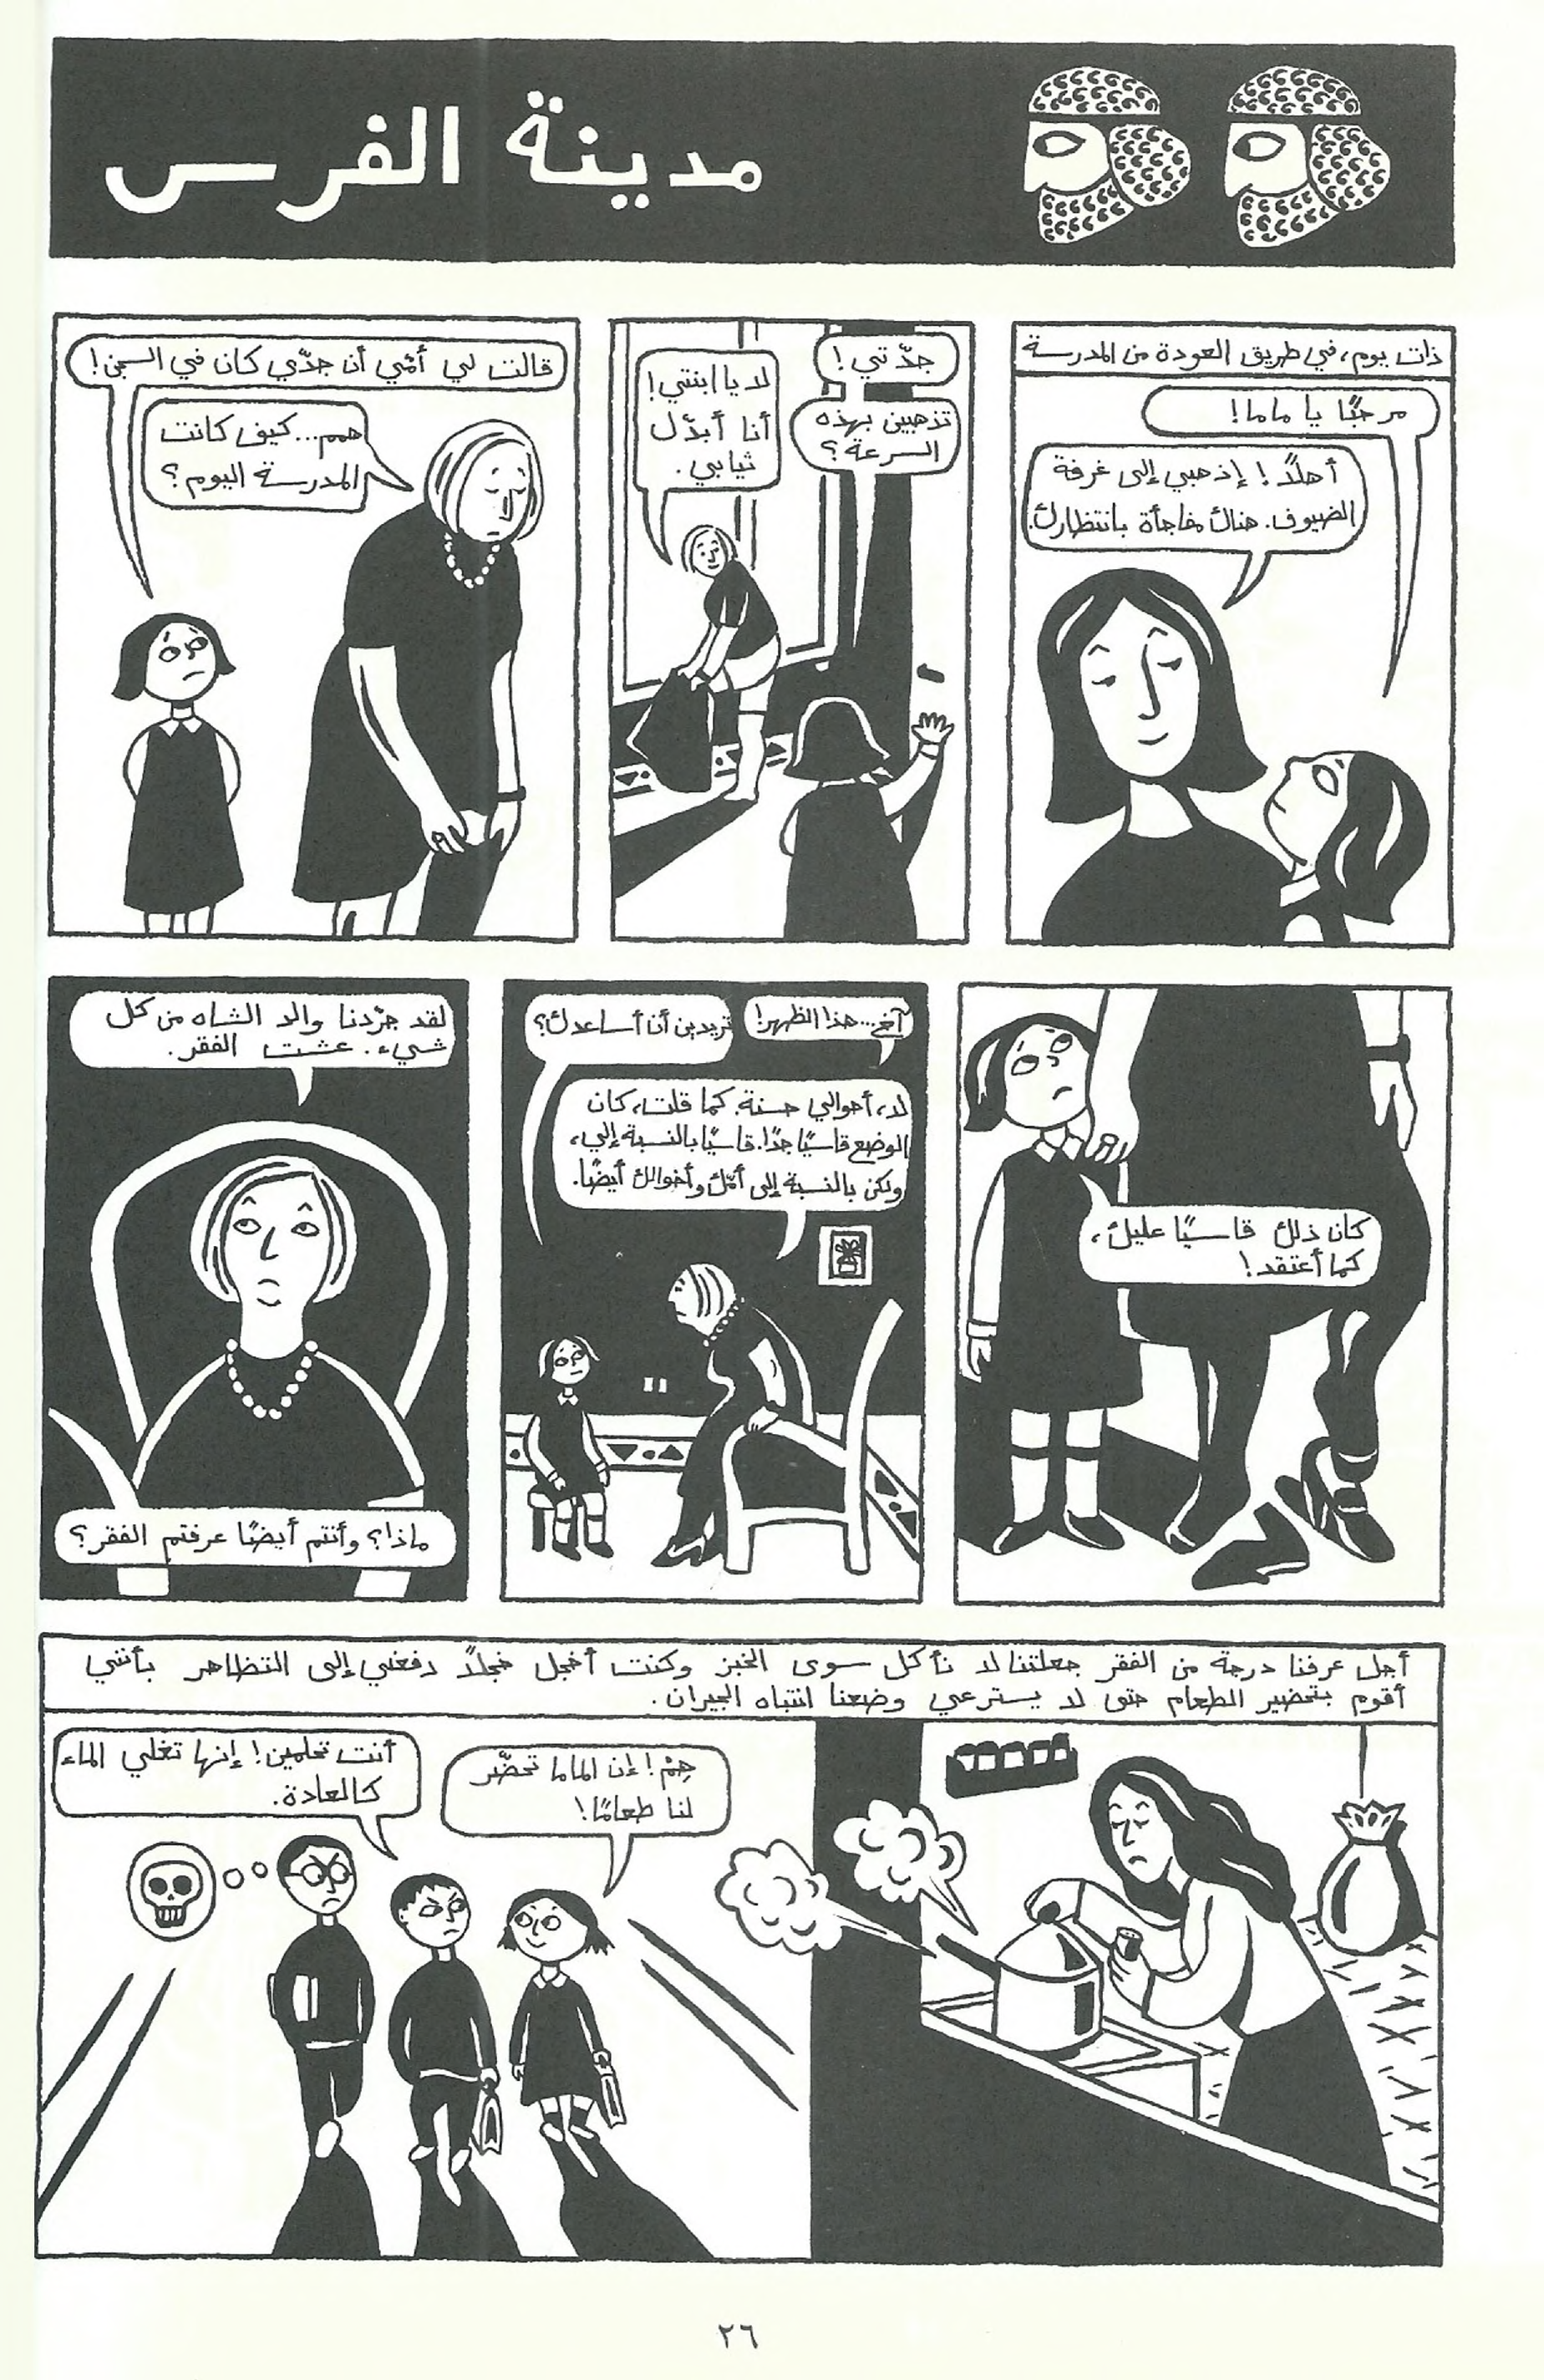 مدينة الفرس
ذات يوم، في طريق العودة من المدرسة
مرحبًا يا ماما!
أهلاً! إذهبي إلى غرفة
الضيوف. هناك مفاجأة بانتظارك.
جدّتي!
تذهبين بهذه
السرعة؟
لا يا ابنتي!
أنا أبدّل
ثيابي.
قالت لي أمّي أن جدّي كان في السجن!
همم... كيف كانت
المدرسة اليوم؟
كان ذلك قاسيًا عليك،
كما أعتقد!
آخ... هذا الظهر!
تريدين أن أساعدك؟
لا، أحوالي حسنة. كما قلت، كان
الوضع قاسيًا جدًا. قاسيًا بالنسبة إلي،
ولكن بالنسبة إلى أمّك وأخوالك أيضًا.
لقد جرّدنا والد الشاه من كل
شيء. عشت الفقر.
ماذا؟ وأنتم أيضًا عرفتم الفقر؟
أجل عرفنا درجة من الفقر جعلتنا لا نأكل سوى الخبز وكنت أخجل خجلاً دفعني إلى التظاهر بأنني
أقوم بتحضير الطعام حتى لا يسترعي وضعنا انتباه الجيران.
هِمْ! إن الماما تحضّر
لنا طعامًا!
أنت تحلمين! إنها تغلي الماء
كالعادة.
٢٦